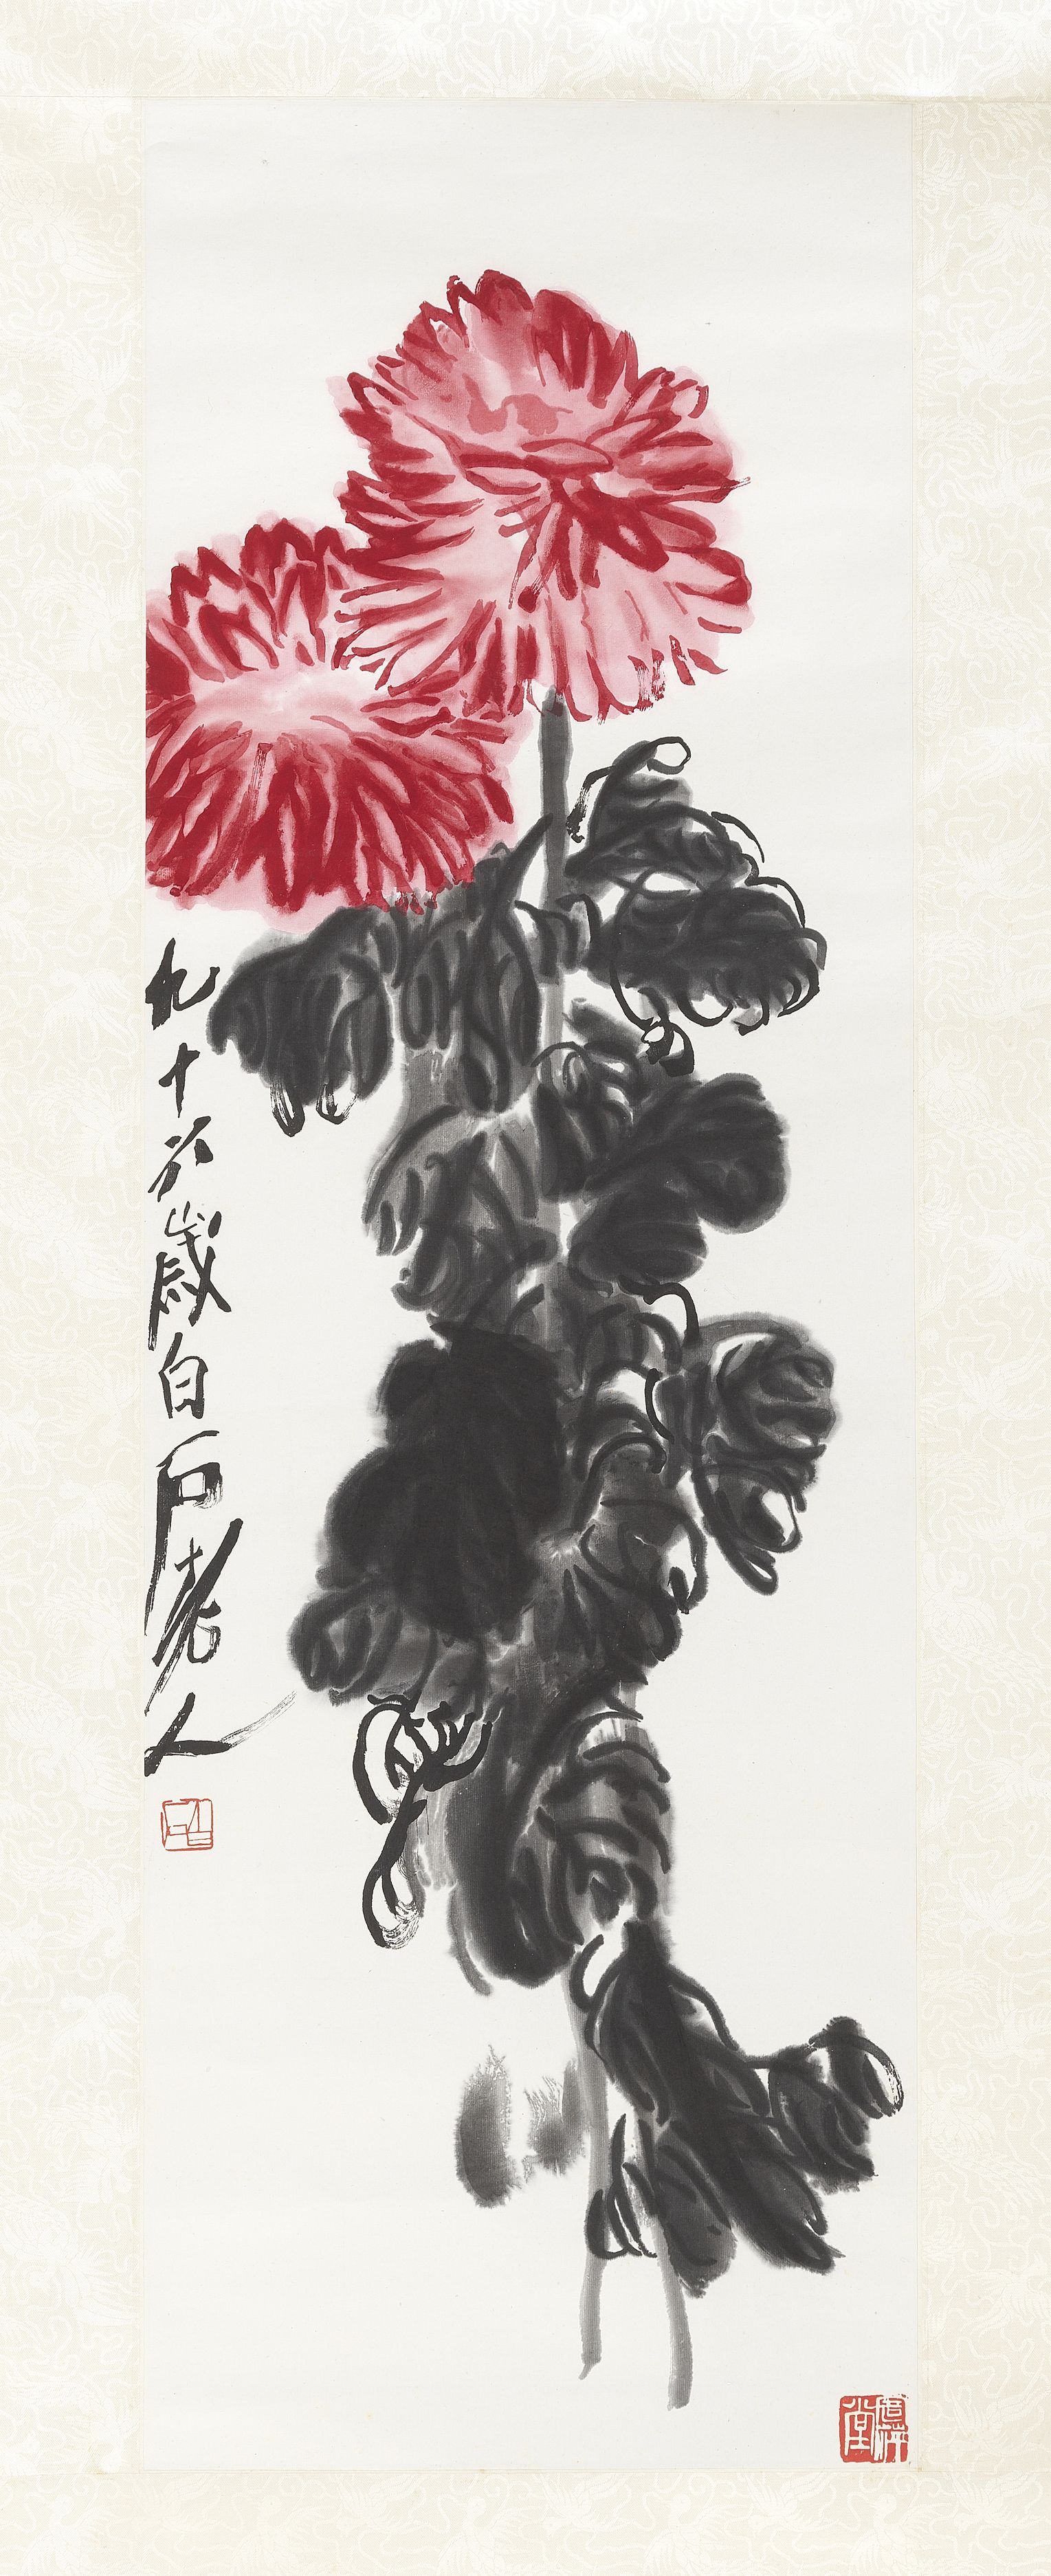 九十六歲白石老人